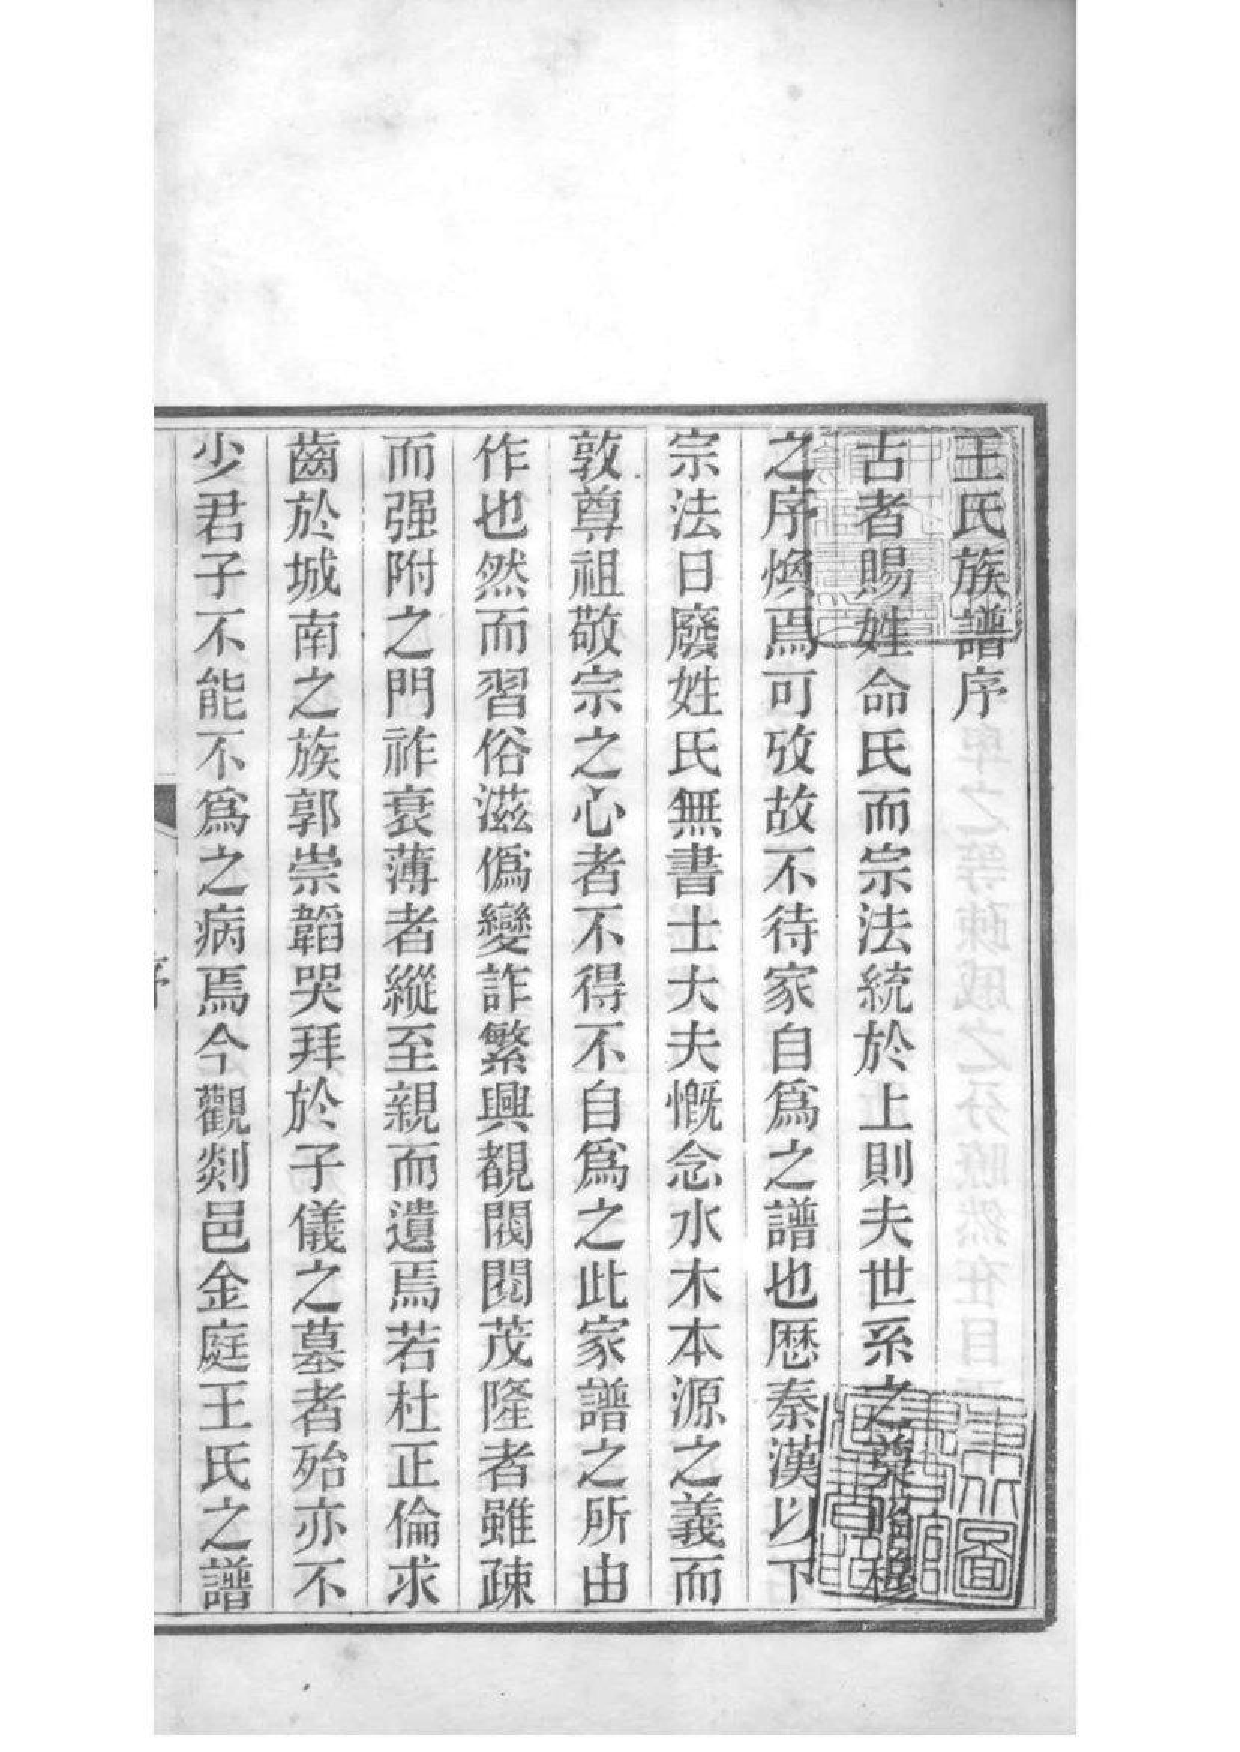 王氏族譜序
古者賜姓命氏而宗法統於上則夫世系之尊昭穆
之序煥焉可攷故不待家自爲之譜也厯秦漢以下
宗法日廢姓氏無書士大夫慨念水木本源之義而
敦尊祖敬宗之心者不得不自爲之此家譜之所由
作也然而習俗滋僞變詐繁興覩閥閱茂隆者雖疎
而强附之門祚衰薄者縱至親而遺焉若杜正倫求
齒於城南之族郭崇韜哭拜於子儀之墓者殆亦不
少君子不能不爲之病焉今觀剡邑金庭王氏之譜
序